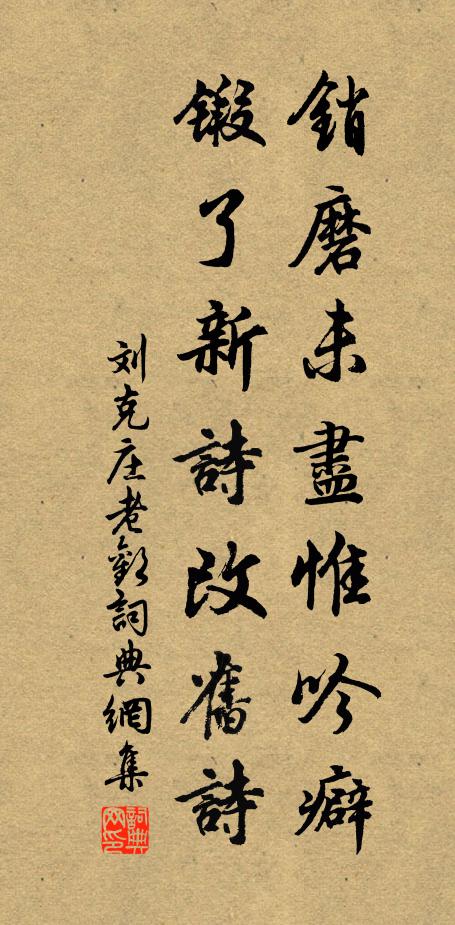 銷磨未盡惟吟癖
鍛了新詩改舊詩
刘克庄老歡詞典網集
詞典網印